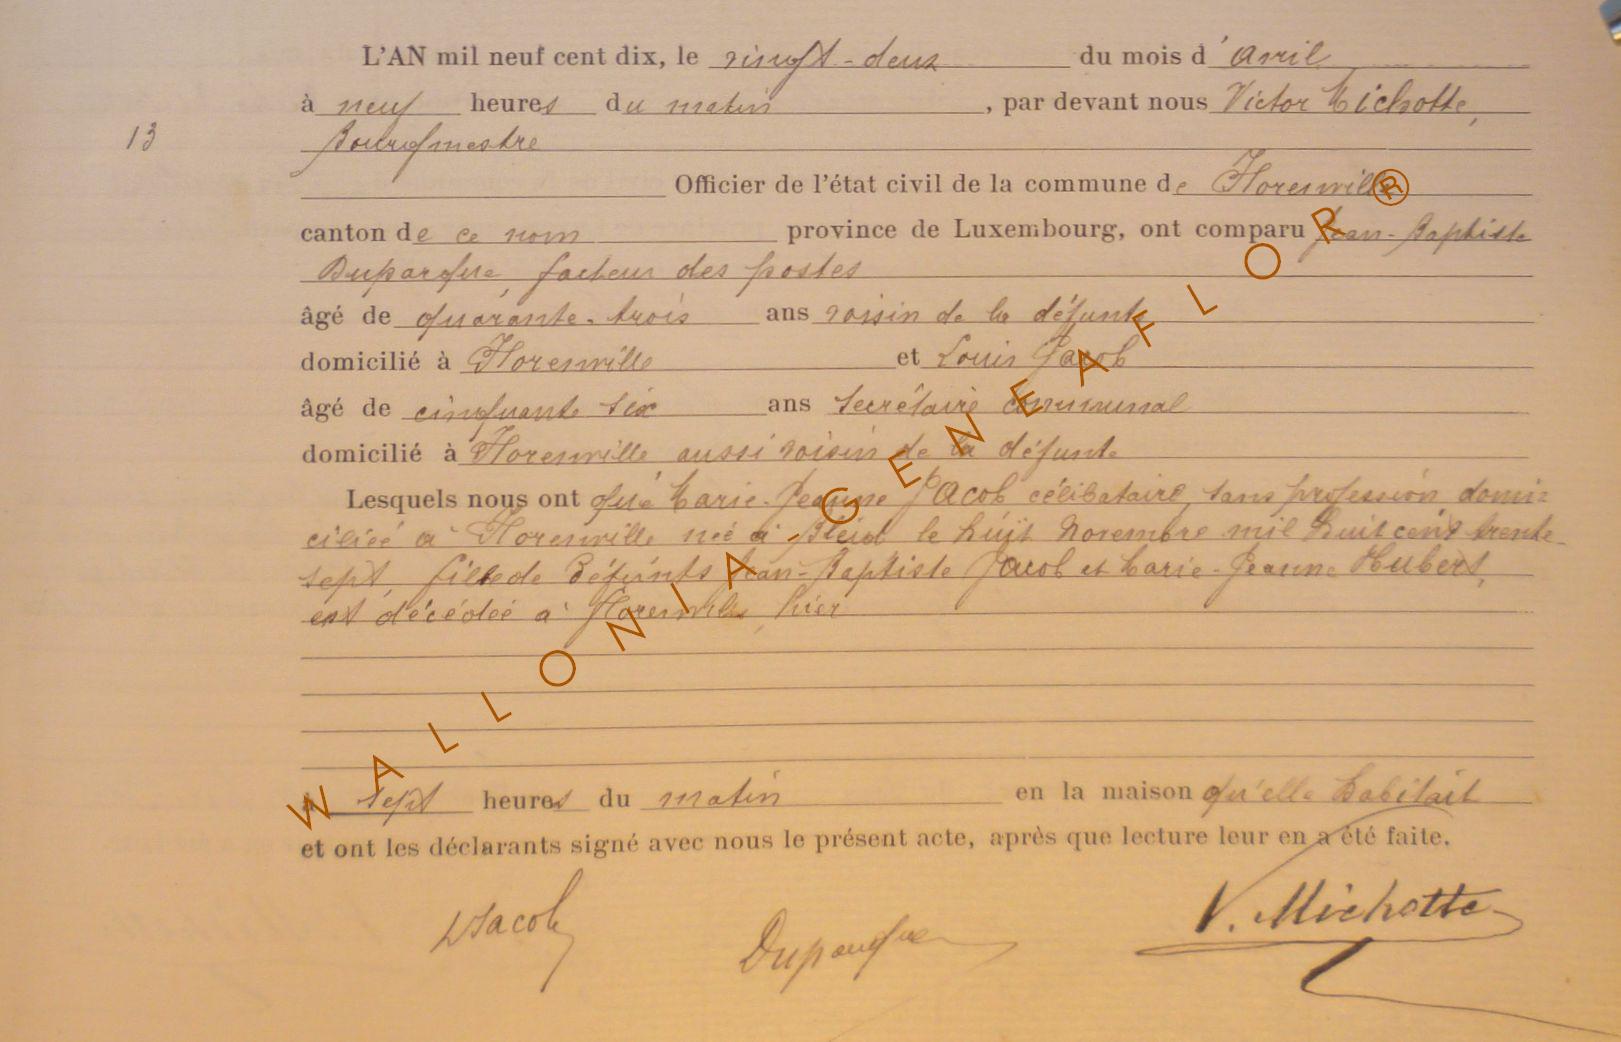 L'AN mil neuf cent dix, le vingt-deux du mois d'avril
à neuf heures du matin, par devant nous Victor Michotte,
13
Bourgmestre
Officier de l'état civil de la commune de Florenville
canton de ce nom province de Luxembourg, ont comparu Jean-Baptiste
Duparque, facteur des postes
âgé de quarante-trois ans voisin de la défunte
domicilié à Florenville et Louis Jacob
âgé de cinquante six ans secrétaire communal
domicilié à Florenville aussi voisin de la défunte
Lesquels nous ont que Marie-Jeanne Jacob célibataire, sans profession domi-
ciliée à Florenville née à le huit Novembre mil huit cent trente-
sept, fille de défunts Jean-Baptiste Jacob et Marie-Jeanne Hubert,
est décédée à Florenville, hier
à sept heures du matin en la maison qu'elle habitait
et ont les déclarants signé avec nous le présent acte, après que lecture leur en a été faite.
LJacob
Duparque
V. Michotte
WALLONIA-GENEAFLOR®